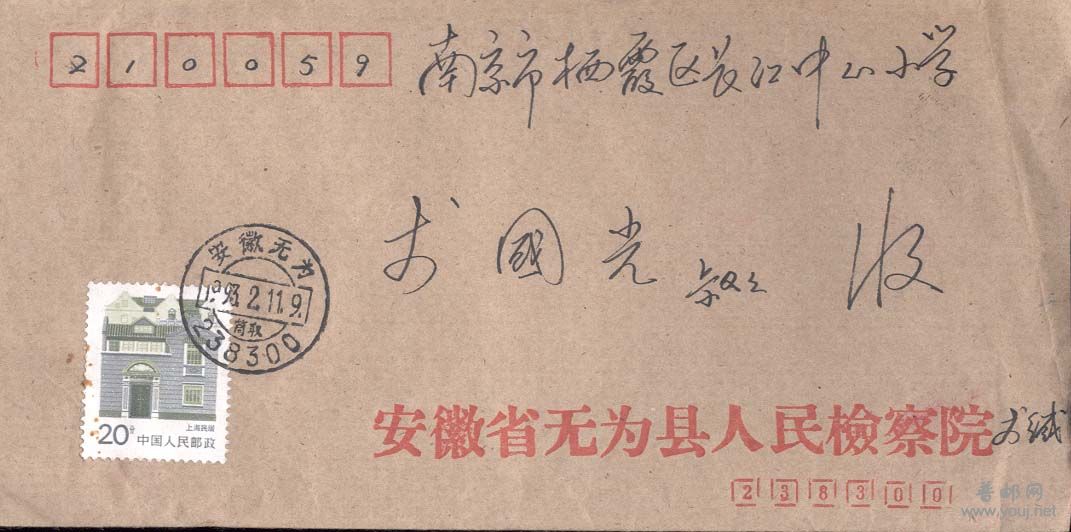 210059
南京市栖霞区长江中心小学
國光 收
安徽无为
1993.2.11.9.
筒取
238300
上海民居
20分
中国人民邮政
安徽省无为县人民檢察院
238300
普邮网
www.youj.net